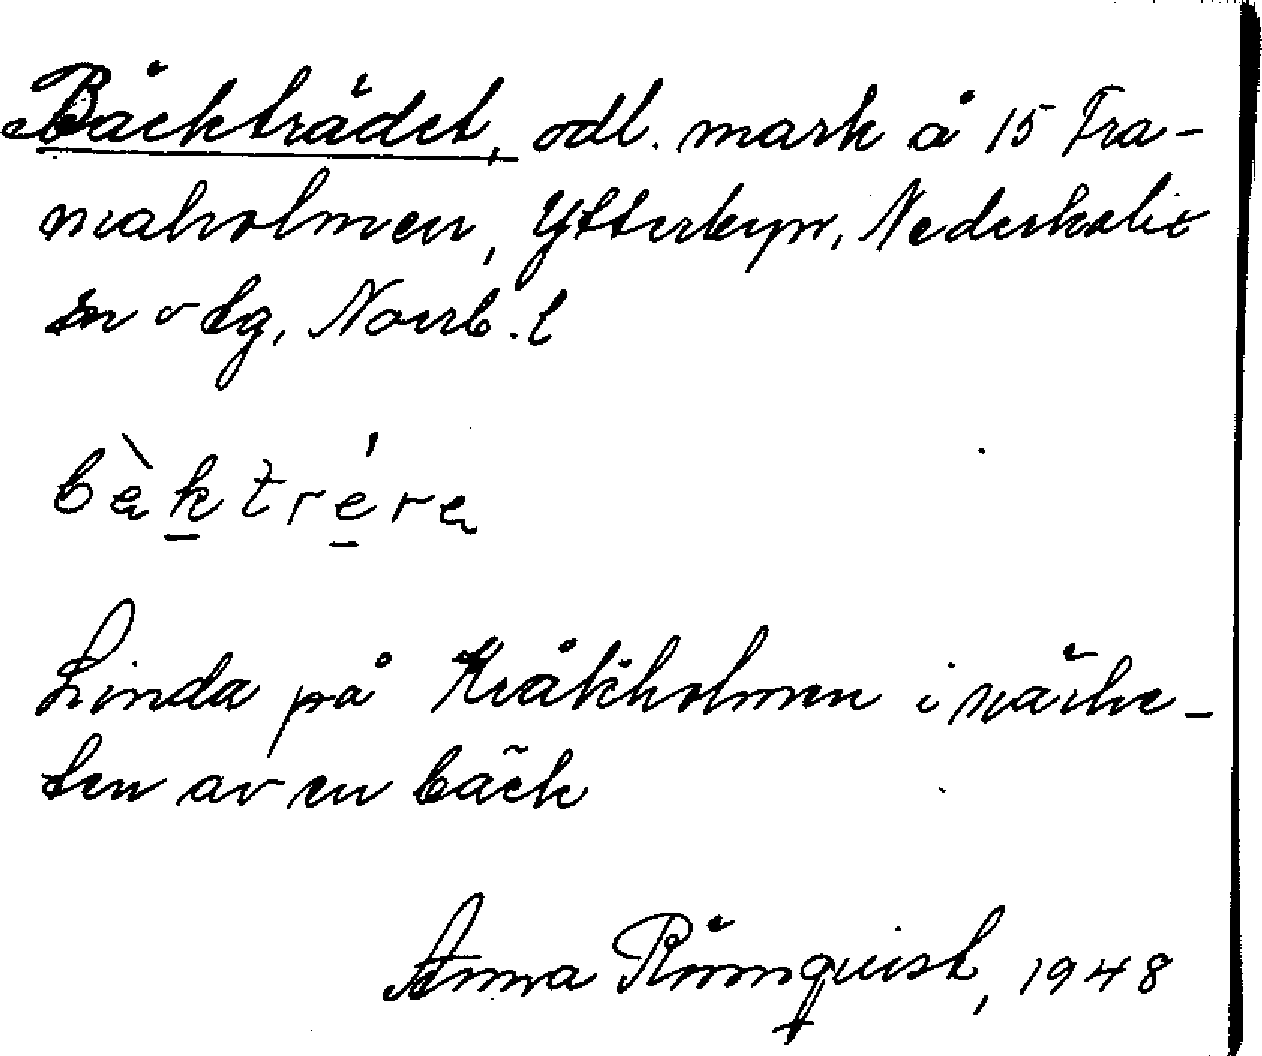 Bäckträdet, odl. mark å 15 Fra-
maholmen, Ytterbyn, Nederkalix
sn o tg, Norrb. l
bèktrére
Linda på Kråkholmen i närhe-
ten av en bäck
Anna Römquist, 1948